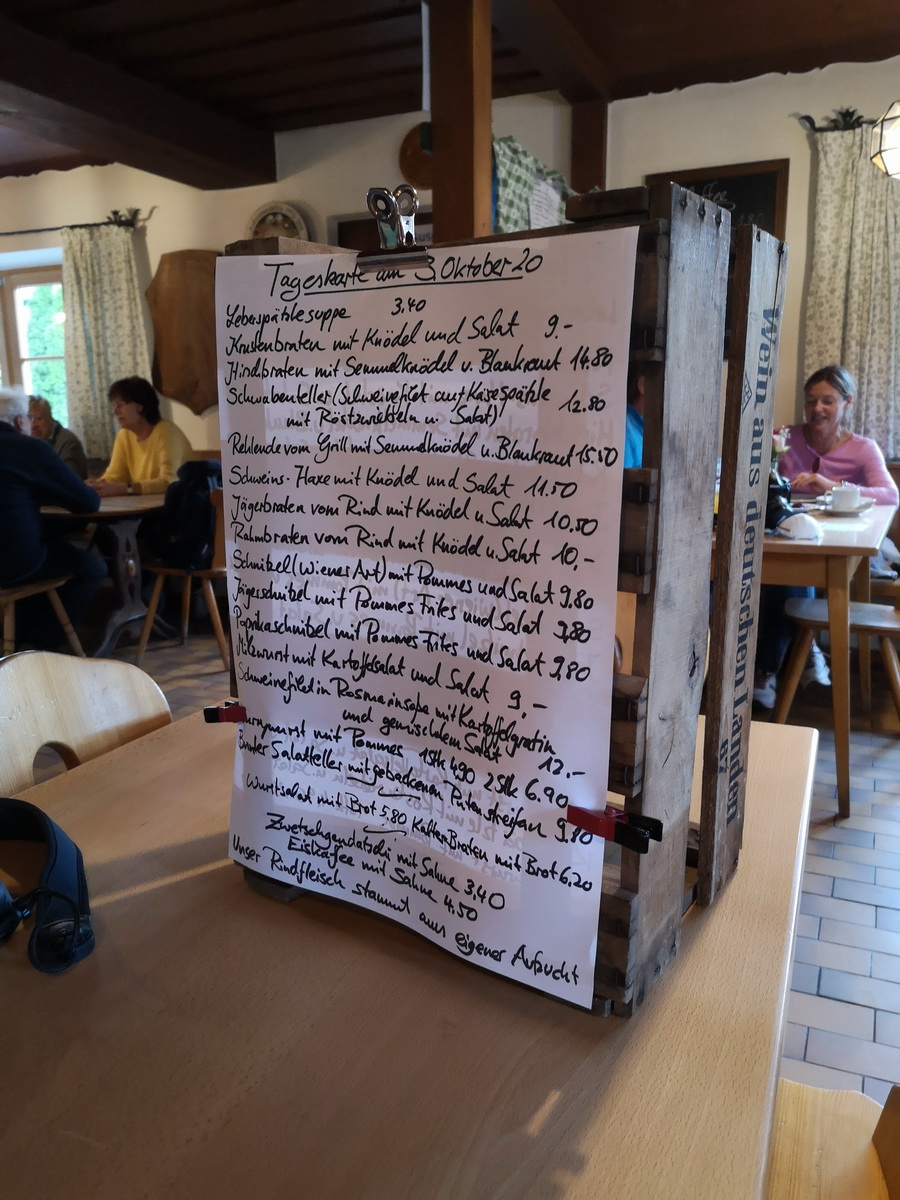 Tageskarte am 3. Oktober 20
Leberspätzlesuppe 3.40
Krustenbraten mit Knödel und Salat 9.-
Hirschbraten mit Semmelknödel u. Blaukraut 14.80
Schwabenteller (Schweinefilet auf Käsespätzle 12.80
mit Röstzwiebeln u. Salat)
Rehlende vom Grill mit Semmelknödel u. Blaukraut 15.50
Schweins-Haxe mit Knödel und Salat 11.50
Jägerbraten vom Rind mit Knödel u. Salat 10.50
Rahmbraten vom Rind mit Knödel u. Salat 10,-
Schnitzel (Wiener Art) mit Pommes und Salat 9.80
Jägerschnitzel mit Pommes Frites und Salat 9,80
Paprikaschnitzel mit Pommes Frites und Salat 9,80
Milzwurst mit Kartoffelsalat und Salat 9,-
Schweinefilet in Rosmarinsoße mit Kartoffelgratin
und gemischtem Salat 12.-
Currywurst mit Pommes 1Stk 4,90 2Stk 6.90
Bunter Salatteller mit gebackenen Putenstreifen 9.80
Wurstsalat mit Brot 5,80 Kalten Braten mit Brot 6,20
Zwetschgendatschi mit Sahne 3,40
Eiskaffee mit Sahne 4.50
Unser Rindfleisch stammt aus eigener Aufzucht
Wein aus deutschen Landen